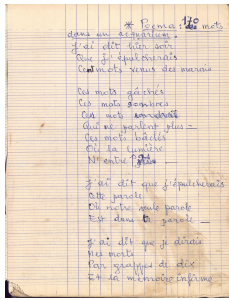 * Poema : 170 mots
dans un aquarium.
J'ai dit hier soir
Que j'épulcherais
Cent mots venus des marais
Ces mots gâchés
Ces mots sombres
Ces mots
Qui ne parlent plus —
Ces mots bâclés
Où la lumière
N'entre plus
J'ai dit que j'épulcherais
Cette parole
Où notre seule parole
Est dans ta parole —
J'ai dit que je dirais
Mes morts
Par grappes de dix
Et la mémoire infirme